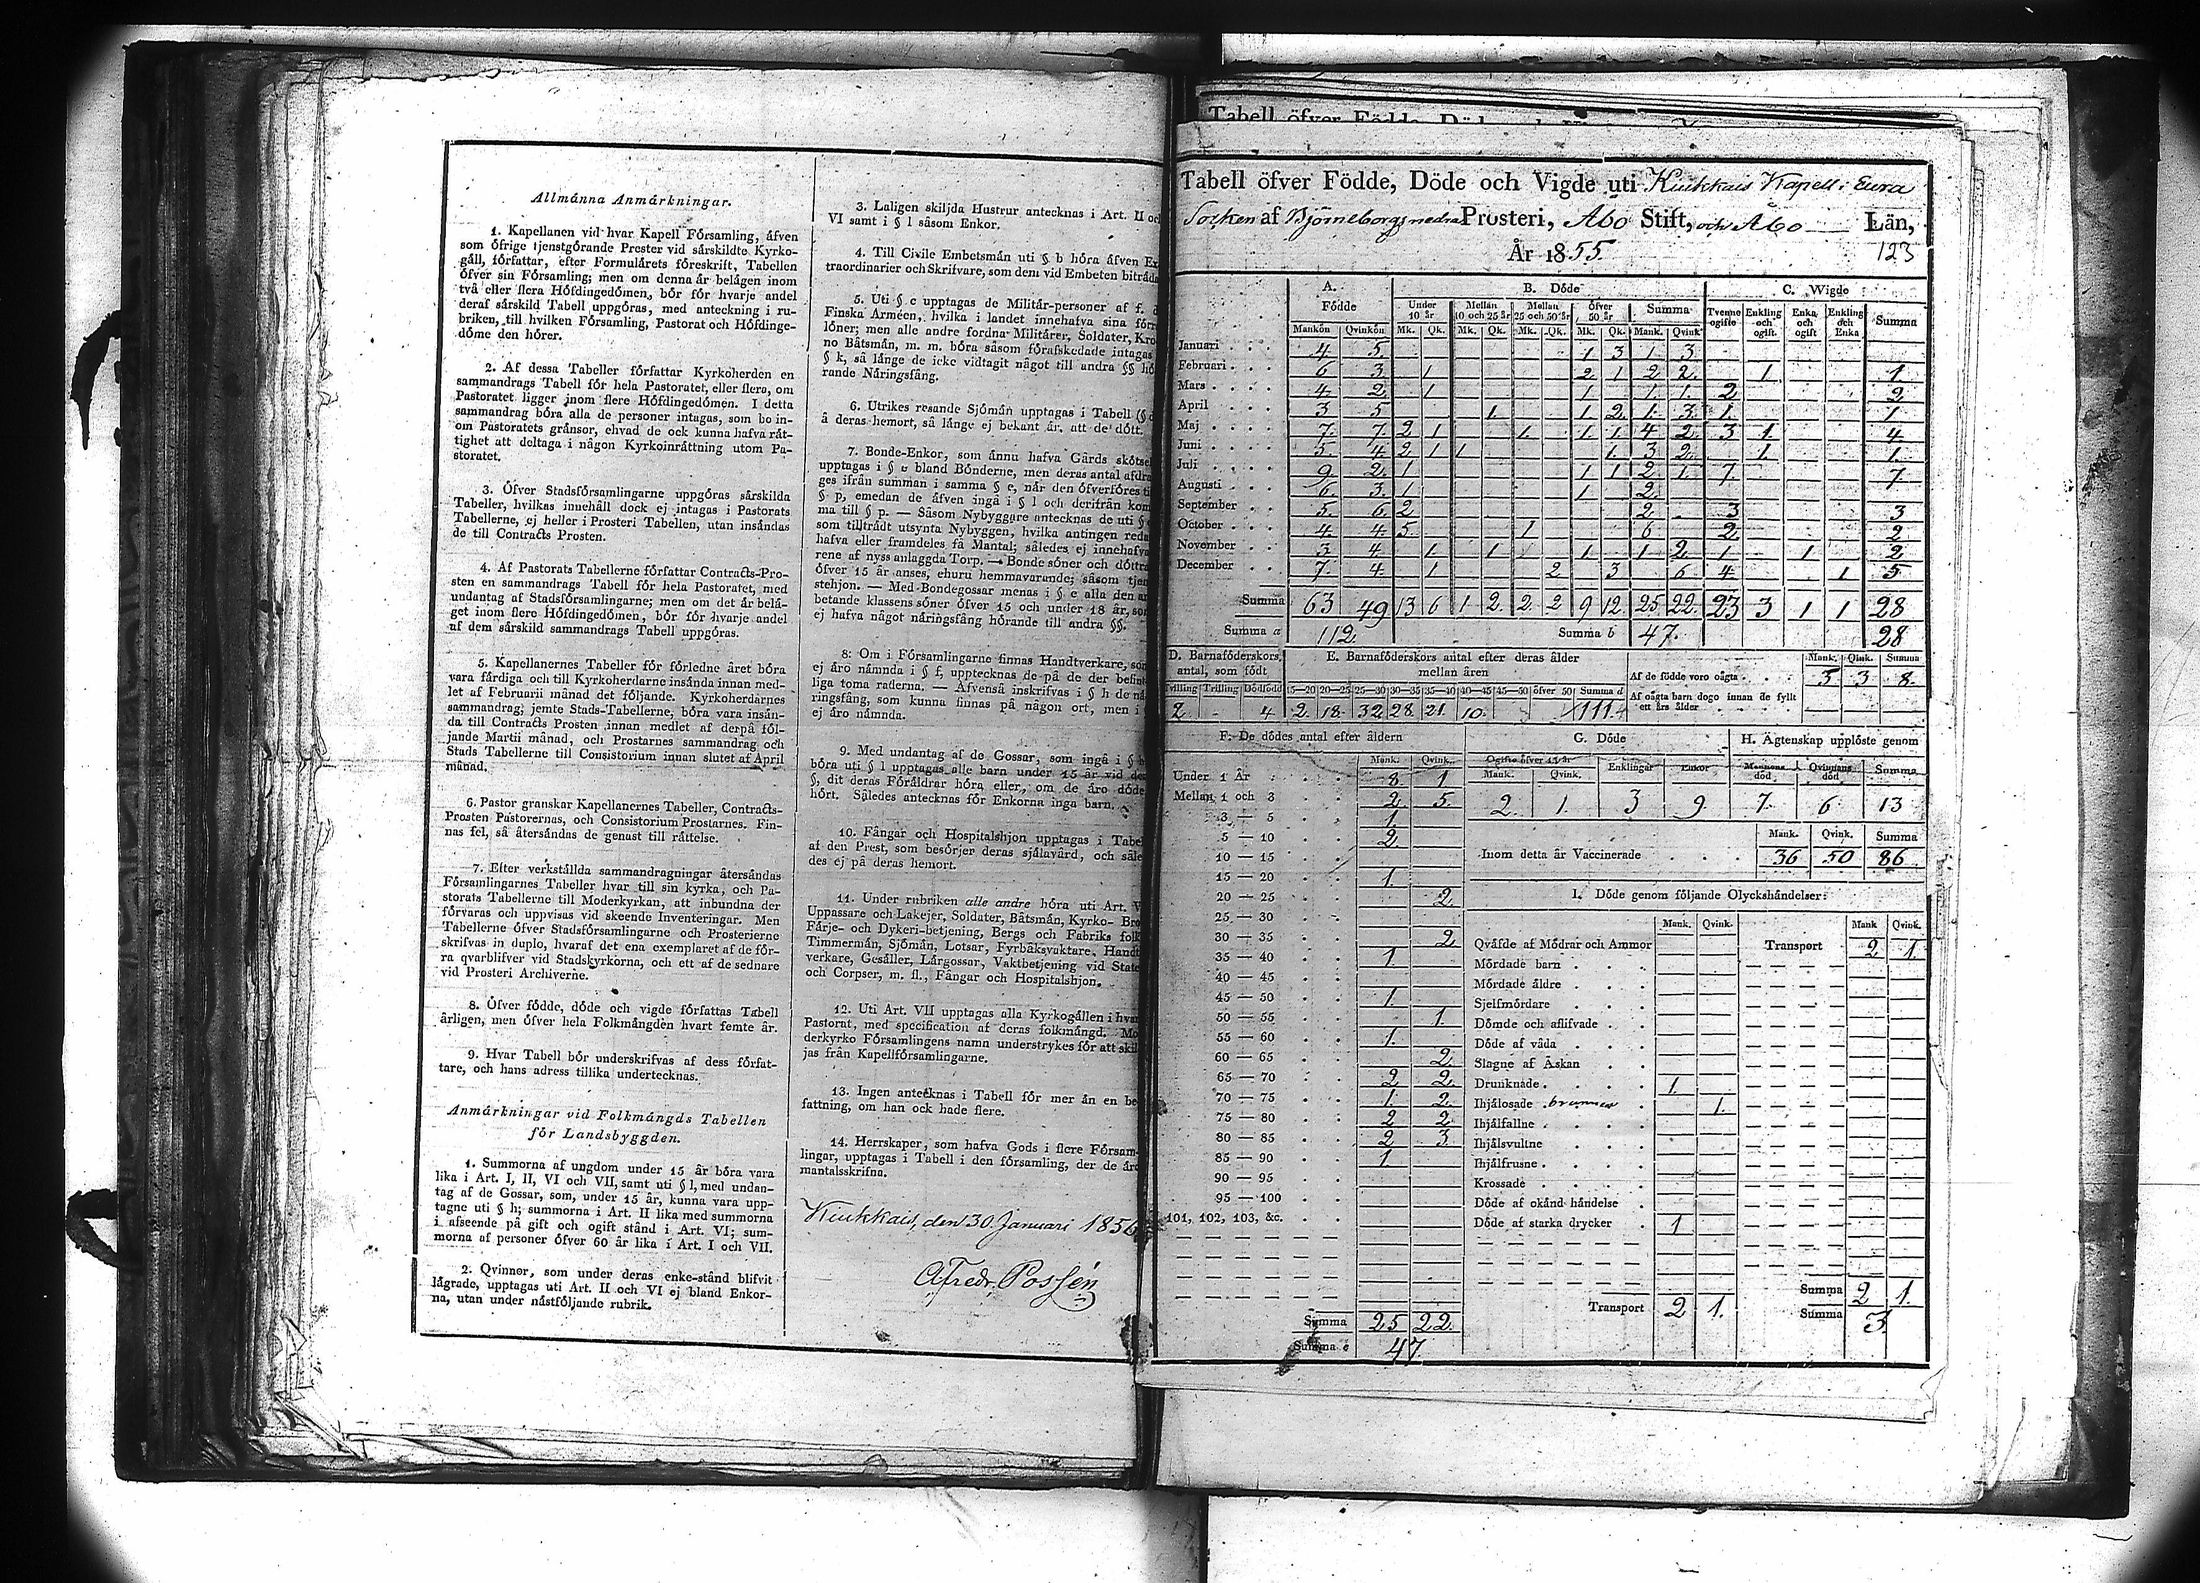 Allmänna Anmärkningar.
1. Kapellanen vid hvar Kapell Församling, äfven
som öfrige tjenstgörande Prester vid särskildte Kyrko-
gäll, författar, efter Formulärets föreskrift, Tabellen
öfver sin Församling; men om denna är belägen inom
två eller flera Höfdingedömen, bör för hvarje andel
deraf särskild Tabell uppgöras, med anteckning i ru-
briken, till hvilken Församling, Pastorat och Höfdinge-
döme den hörer.
2. Af dessa Tabeller författar Kyrkoherden en
sammandrags Tabell för hela Pastoratet, eller flera, om
Pastoratet ligger inom flere Höfdingedömen. I detta
sammandrag böra alla de personer intagas, som bo in-
om Pastoratets gränsor, ehvad de ock kunna hafva rät-
tighet att deltaga i någon Kyrkoinrättning utom Pa-
storatet.
3. Öfver Stadsförsamlingarne uppgöras särskilda
Tabeller, hvilkas innehåll dock ej intagas i Pastorats
Tabellerne, ej heller i Prosteri Tabellen, utan insändas
de till Contracts Prosten.
4. Af Pastorats Tabellerne författar Contracts-Pro-
sten en sammandrags Tabell för hela Pastoratet, med
undantag af Stadsförsamlingarne; men om det är belä-
get inom flere Höfdingedömen, bör för hvarje andel
af dem särskild sammandrags Tabell uppgöras.
5. Kapellanernes Tabeller för förledne året böra
vara färdiga och till Kyrkoherdarne insända innan med-
let af Februarii månad det följande. Kyrkoherdarnes
sammandrag, jemte Stads-Tabellerne, böra vara insän-
da till Contracts Prosten innan medlet af derpå föl-
jande Martii månad, och Prostarnes sammandrag och
Stads Tabellerne till Consistorium innan slutet af April
månad.
6. Pastor granskar Kapellanernes Tabeller, Contracts-
Prosten Pastorernas, och Consistorium Prostarnes. Fin-
nas fel, så återsändas de genast till rättelse.
7. Efter verkställda sammandragningar återsändas
Församlingarnes Tabeller hvar till sin kyrka, och Pa-
storats Tabellerne till Moderkyrkan, att inbundna der
förvaras och uppvisas vid skeende Inventeringar. Men
Tabellerne öfver Stadsförsamlingarne och Prosterierne
skrifvas in duplo, hvaraf det ena exemplaret af de för-
ra qvarblifver vid Stadskyrkorna, och ett af de sednare
vid Prosteri Archiverne.
8. Öfver födde, döde och vigde författas Tabell
årligen, men öfver hela Folkmängden hvart femte år.
9. Hvar Tabell bör underskrifvas af dess förfat-
tare, och hans adress tillika undertecknas.
Anmärkningar vid Folkmängds Tabellen
för Landsbyggden.
1. Summorna af ungdom under 15 år böra vara
lika i Art. I, II, VI och VII, samt uti § l, med undan-
tag af de Gossar, som, under 15 år, kunna vara upp-
tagne uti § h; summorna i Art. II lika med summorna
i afseende på gift och ogift stånd i Art. VI; sum-
morna af personer öfver 60 år lika i Art. I och VII.
2. Qvinnor, som under deras enke-stånd blifvit
lägrade, upptagas uti Art. II och VI ej bland Enkor-
na, utan under nästföljande rubrik.
3. Laligen skiljda Hustrur antecknas i Art. II oc
VI samt i § l såsom Enkor.
4. Till Civile Embetsmän uti § b höra äfven Ex
traordinarier och Skrifvare, som dem vid Embeten biträda
5. Uti § c upptagas de Militär-personer af f. d
Finska Arméen, hvilka i landet innehafva sina förr
löner; men alle andre fordna Militärer, Soldater, Kro
no Båtsmän, m. m. böra såsom förafskedade intagas
§ k, så länge de icke vidtagit något till andra §§ hö
rande Näringsfång.
6. Utrikes resande Sjömän upptagas i Tabell (§ d
å deras hemort, så länge ej bekant är, att de dött.
7. Bonde-Enkor, som ännu hafva Gårds skötsel
upptagas i § e bland Bönderne, men deras antal afdra
ges ifrån summan i samma § e, når den öfverföres ti
§ p, emedan de äfven ingå i § l och derifrån kom
ma till § p. — Såsom Nybyggare antecknas de uti §
som tillträdt utsynta Nybyggen, hvilka antingen reda
hafva eller framdeles få Mantal; således ej innehafva
rene af nyss anlaggda Torp. — Bonde söner och döttra
öfver 15 år anses, ehuru hemmavarande, såsom tjen
stehjon. — Med Bondegossar menas i § e alla den ar
betande klassens söner öfver 15 och under 18 år, som
ej hafva något näringsfång hörande till andra §§.
8: Om i Församlingarne finnas Handtverkare, som
ej äro nämnda i § f, upptecknas de på de der befint
liga toma raderna. — Äfvenså inskrifvas i § h de nä
ringsfång, som kunna finnas på någon ort, men i
ej äro nämnda.
9. Med undantag af de Gossar, som ingå i § h
böra uti § l upptagas alle barn under 15 år vid de
§, dit deras Föräldrar höra eller, om de äro döde
hört. Således antecknas för Enkorna inga barn.
10. Fångar och Hospitalshjon upptagas i Tabel
af den Prest, som besörjer deras själavård, och såle
des ej på deras hemort.
11. Under rubriken alle andre höra uti Art. V
Uppassare och Lakejer, Soldater, Båtsmän, Kyrko- Bro
Färje- och Dykeri-betjening, Bergs och Fabriks folk
Timmermän, Sjömän, Lotsar, Fyrbåksvaktare, Handt
verkare, Gesäller, Lärgossar, Vaktbetjening vid State
och Corpser, m. fl., Fångar och Hospitalshjon.
12. Uti Art. VII upptagas alla Kyrkogällen i hvar
Pastorat, med specification af deras folkmängd. Mo
derkyrko Församlingens namn understrykes för att skil
jas från Kapellförsamlingarne.
13. Ingen antecknas i Tabell för mer än en be
fattning, om han ock hade flere.
14. Herrskaper, som hafva Gods i flere Försam-
lingar, upptagas i Tabell i den församling, der de äro
mantalsskrifna.
Kiukkais, den 30. Januari 1856
Alfredr. Possén
Tabell öfver Födde, Döde och Vigde uti Kiukkais Kapell i Eura
Socken af Björneborgs nedra Prosteri, Åbo Stift, och Åbo Län,
År 1855. 123
A. Födde B. Döde C. Wigde
Under 10 år Mellan 10 och 25 år Mellan 25 och 50 år öfver 50 år Summa Tvenne ogifte Enkling och ogift. Enka och ogift Enkling och Enka Summa
Mankön Qvinkön Mk. Qk. Mk. Qk. Mk. Qk. Mk. Qk. Mank. Qvink
Januari 4 5 1 3 1 3
Februari 6 3 1 2 1 2 2 1 1
Mars 4 2 1 1 1 1 2 2
April 3 5 1 1 2 1 3 1 1
Maj 7 7 2 1 1 1 1 4 2 3 1 4
Juni 5 4 2 1 1 1 3 2 1 1
Juli 9 2 1 1 1 2 1 7 7
Augusti 6 3 1 1 2
September 5 6 2 2 3 3
October 4 4 5 1 6 2 2
November 3 4 1 1 1 1 2 1 1 2
December 7 4 1 2 3 6 4 1 5
Summa 63 49 13 6 1 2 2 2 9 12 25 22 23 3 1 1 28
Summa a 112 Summa b 47 28
D. Barnaföderskors antal, som födt
Tvilling Trilling Dödfödd
2 - 4
E. Barnaföderskors antal efter deras ålder mellan åren
15—20 20—25 25—30 30—35 35—40 40—45 45—50 öfver 50 Summa d
2 18 32 28 21 10 111
Mank. Qink. Summa
Af de födde voro oägta 5 3 8
Af oägta barn dogo innan de fyllt
ett års ålder
F. De dödes antal efter åldern
Mank. Qvink.
Under 1 År 8 1
Mellan 1 och 3 2 5
3 — 5 1
5 — 10 2
10 — 15
15 — 20 1
20 — 25 2
25 — 30
30 — 35 2
35 — 40 1
40 — 45
45 — 50 1
50 — 55 1
55 — 60 1
60 — 65 2
65 — 70 2 2
70 — 75 1 2
75 — 80 2 2
80 — 85 2 3
85 — 90 1
90 — 95
95 — 100
101, 102, 103, &c.
Summa 25 22
Summa e 47
G. Döde
Ogifte öfver 15 år Enklingar Enkor
Mank. Qvink.
2 1 3 9
H. Ägtenskap upplöste genom
Mannens död Qvinnans död Summa
7 6 13
Mank. Qvink. Summa
Inom detta år Vaccinerade 36 50 86
I. Döde genom följande Olyckshändelser:
Mank. Qvink. Mank Qvink.
Qväfde af Mödrar och Ammor Transport 2 1
Mördade barn
Mördade äldre
Sjelfmördare
Dömde och aflifvade
Döde af våda
Slagne af Åskan
Drunknade 1
Ihjälosade brunnen 1
Ihjälfallne
Ihjälsvultne
Ihjälfrusne
Krossade
Döde af okänd händelse
Döde af starka drycker 1
Transport 2 1
Summa 2 1
Summa 3